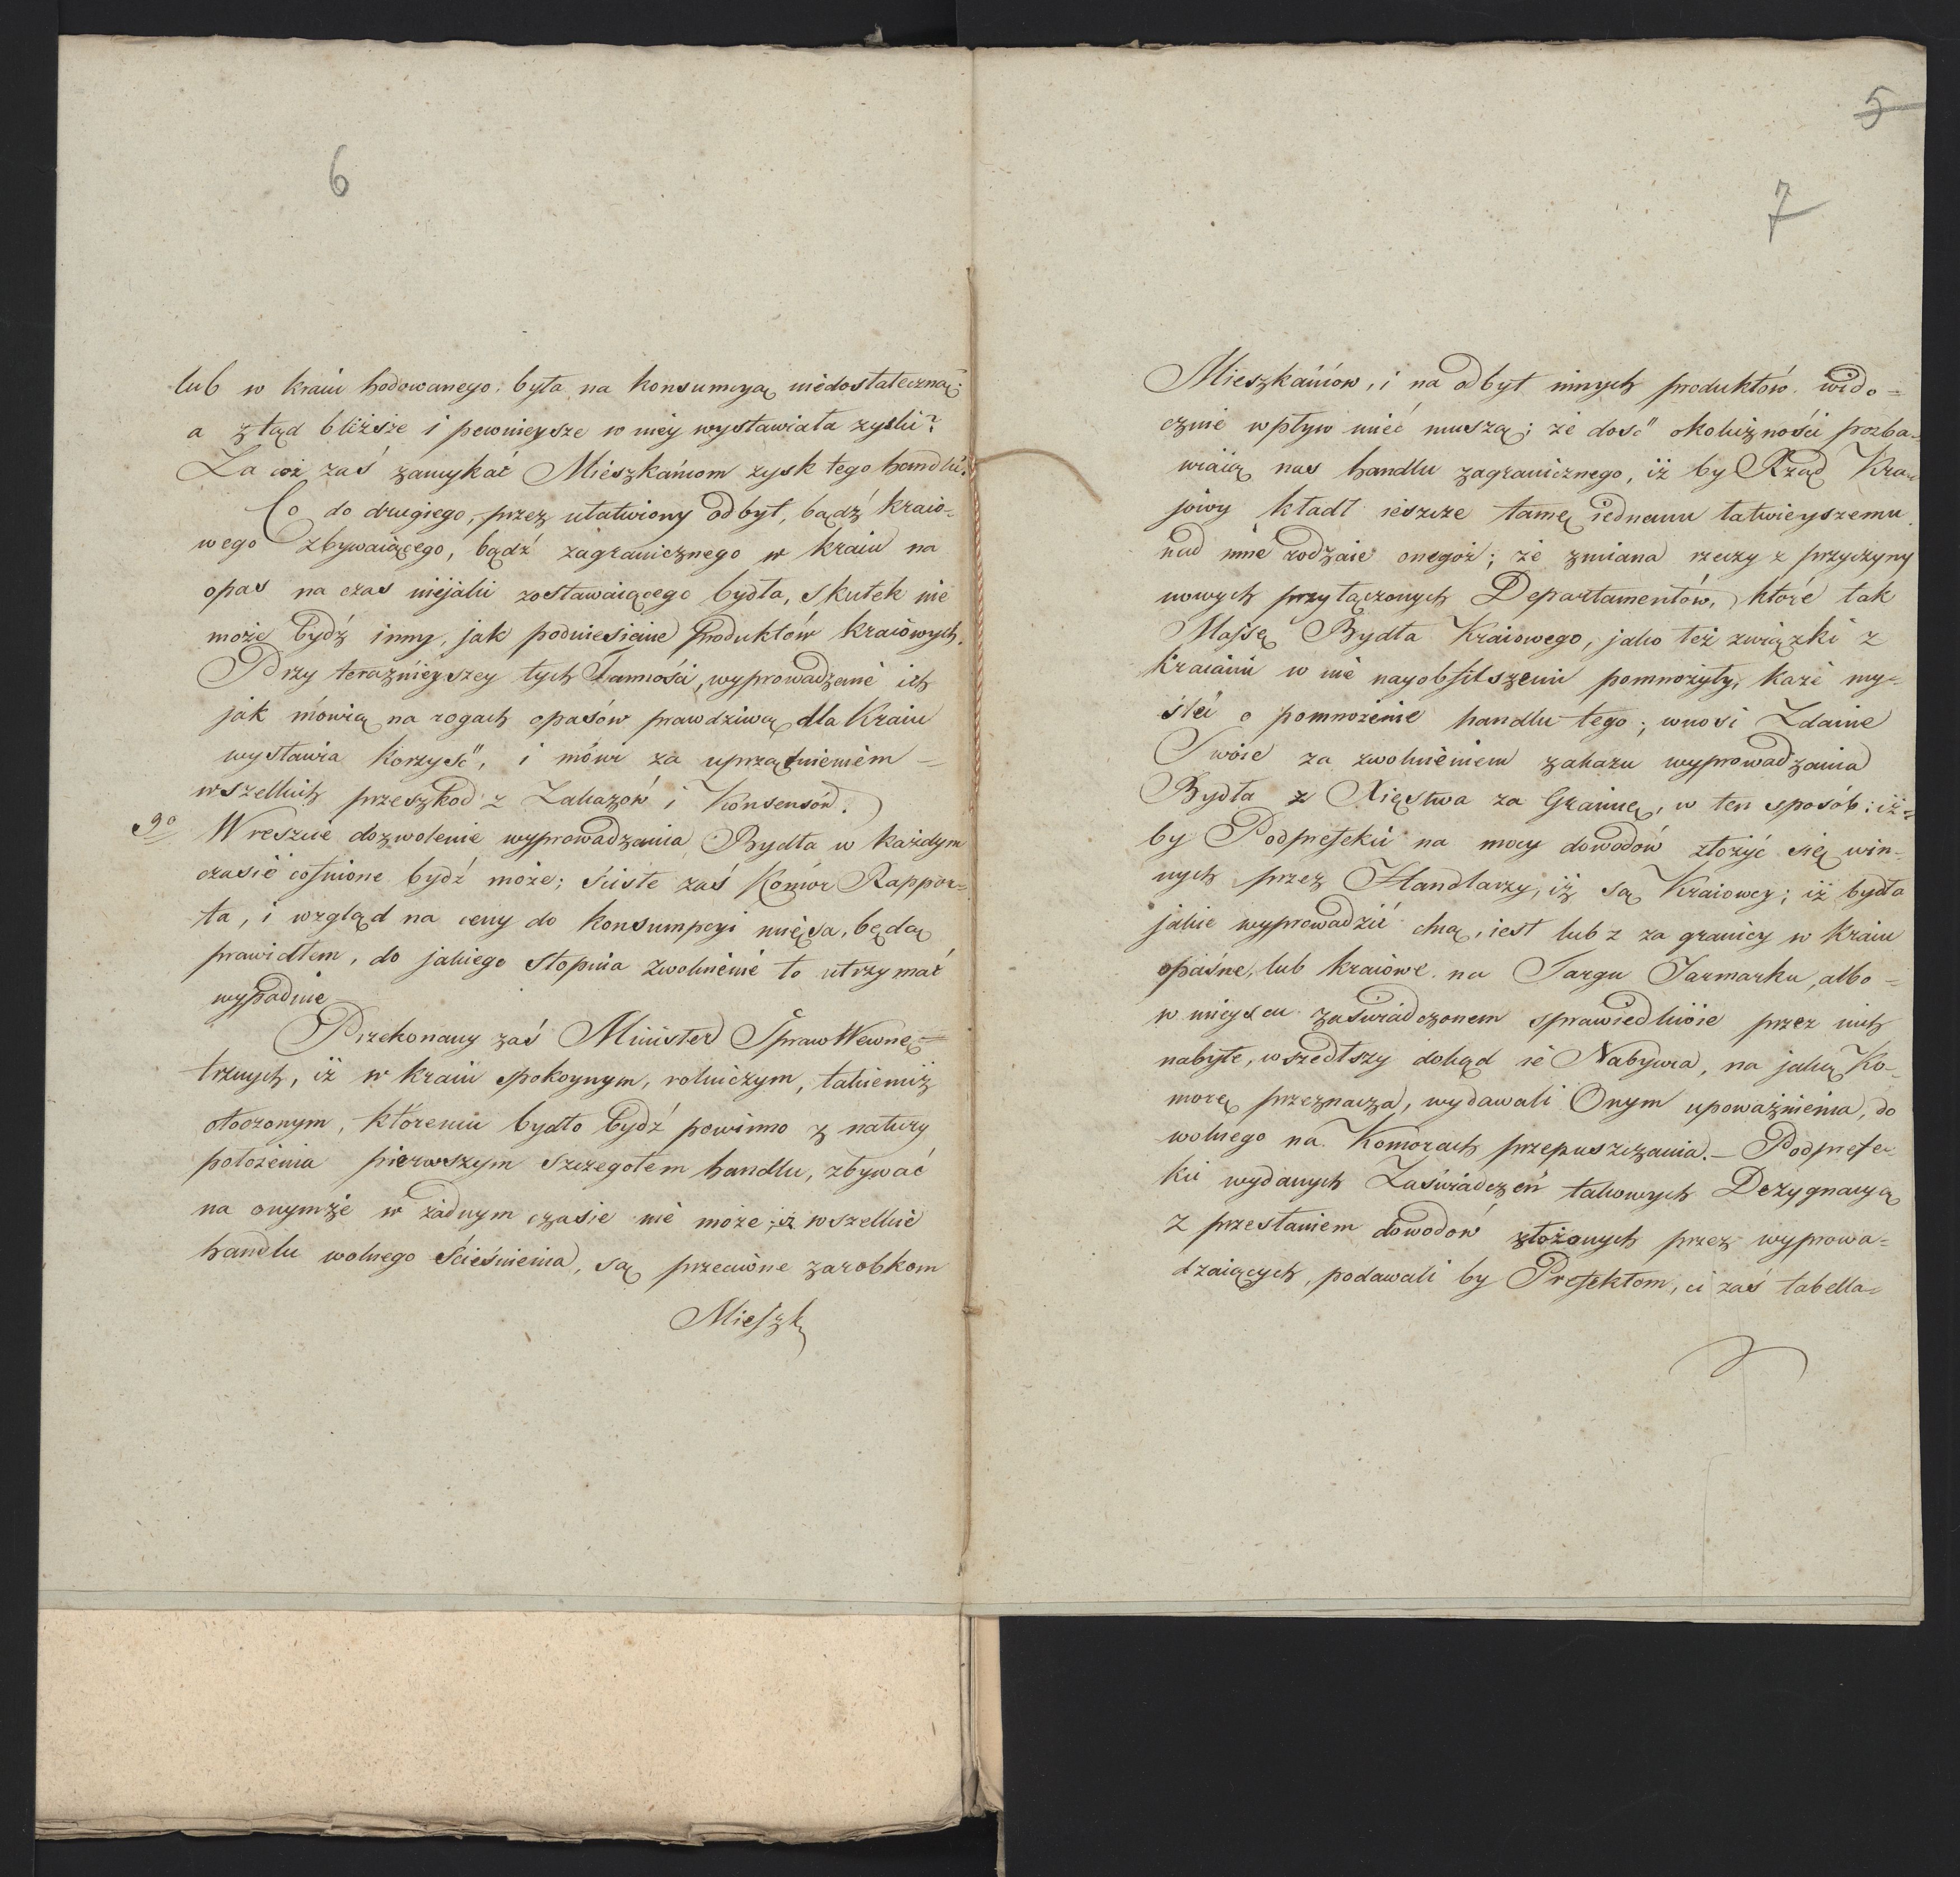 6
lub w kraiu hodowanego, była na konsumcyą niedostateczną;
a ztąd bliższe i pewnieysze w niey wystawiała zyski?
Za coż zaś zamykać Mieszkańcom zysk tego handlu?
Co do drugiego, przez ułatwiony odbyt, bądź kraio-
wego zbywaiącego, bądź zagranicznego w kraiu na
opas na czas niejaki zostawaiącego bydła, skutek nie
może bydź inny, jak podniesienie produktów kraiowych.
Przy teraźnieyszey tych Tanności, wyprowadzenie ich
jak mówią na rogach opasów prawdziwą dla Kraiu
wystawia korzyść, i mówi za uprzątnieniem =
wszelkich przeszkod z Zakazów i Konsensów.
9o Wreszcie dozwolenie wyprowadzania Bydła w każdym
czasie cofnione bydź może; ścisłe zaś Komór Rappor-
ta, i wzgląd na ceny do konsumpcyi mięsa, będą
prawidłem, do jakiego stopnia zwolnienie to utrzymać
wypadnie
Przekonany zaś Minister Spraw Wewnę=
trznych, iż w kraiu spokoynym, rolniczym, takiemiż
otoczonym, któremu bydło bydź powinno z natury
położenia pierwszym szczegółem handlu, zbywać
na onymże w żadnym czasie nie może; iż wszelkie
handlu wolnego ścieśnienia, są przeciwne zarobkom
Mieszk
5
7
Mieszkańców, i na odbyt innych produktów wido=
cznie wpływ mieć muszą; że dość okoliczności pozba-
wiaią nas handlu zagranicznego, iż by Rząd Kra-
jowy kładł ieszcze tamę iednemu łatwieyszemu
nad inne rodzaie onegoż; że zmiana rzeczy z przyczyny
nowych przyłączonych Departamentów, które tak
Massę Bydła Kraiowego, jako też związki z
kraiami w nie nayobfitszemi pomnożyły, każe my-
śleć o pomnożenie handlu tego; wnosi Zdanie
Swoie za zwolnieniem zakazu wyprowadzania
Bydła z Xięstwa za Granicę, w ten sposób: iż=
by Podprefekci na mocy dowodów złożyć się win-
nych przez Handlarzy, iż są Kraiowcy; iż bydło
jakie wyprowadzić chcą, iest lub z za granicy w kraiu
opaśne, lub kraiowe na Targu Jarmarku, albo =
w mieyscu zaświadczonem sprawiedliwie przez nich
nabyte, wszedłszy dokąd ie Nabywca, na jaką Ko-
morę przeznacza, wydawali Onym upoważnienia, do
wolnego na Komorach przepuszczania. – Podprefe-
kci wydanych Zaświadczeń takowych Dezygnacyą
z przesłaniem dowodów złożonych przez wyprowa=
dzaiących, podawali by Prefektom, ci zaś tabella=